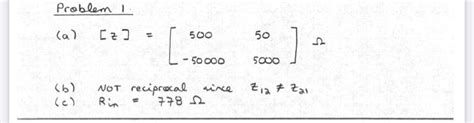 Problem 1.
(a) [z] = [ 500 50
-50000 5000 ] Ω
(b) NOT reciprocal since Z12 ≠ Z21
(c) Rin = 778 Ω